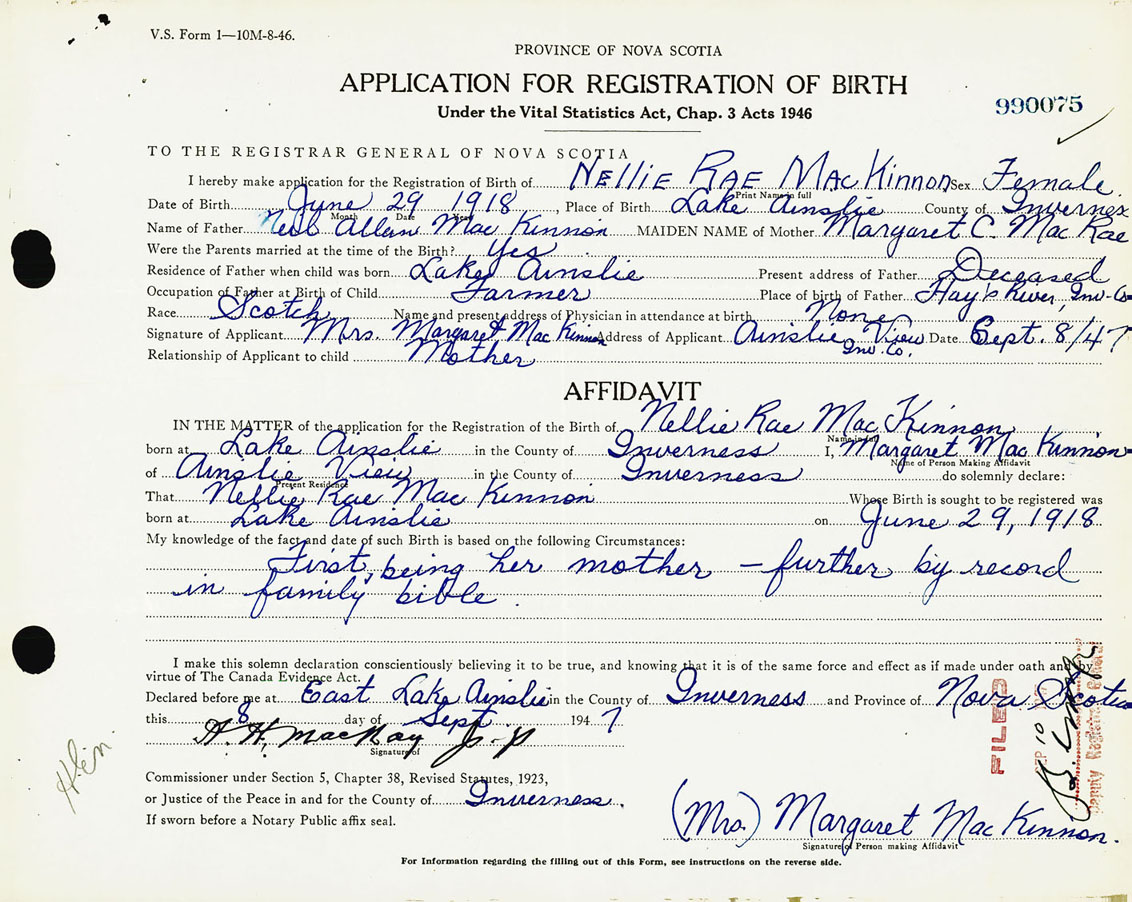 V.S. Form 1—10M-8-46.
PROVINCE OF NOVA SCOTIA
APPLICATION FOR REGISTRATION OF BIRTH
990075
Under the Vital Statistics Act, Chap. 3 Acts 1946
TO THE REGISTRAR GENERAL OF NOVA SCOTIA
I hereby make application for the Registration of Birth of NELLIE RAE MACKINNON Sex Female.
Print Name in full
Date of Birth June 29 1918, Place of Birth Lake Ainslie County of Inverness
Month Date Year
Name of Father Neil Allan Mac Kinnon MAIDEN NAME of Mother Margaret C. Mac Rae
Were the Parents married at the time of the Birth? Yes
Residence of Father when child was born Lake Ainslie Present address of Father Deceased
Occupation of Father at Birth of Child Farmer Place of birth of Father Hay's River, Inv-Co-
Race Scotch Name and present address of Physician in attendance at birth None
Signature of Applicant Mrs. Margaret Mac Kinnon Address of Applicant Ainslie View Date Sept. 8/47
Inv. Co.
Relationship of Applicant to child Mother
AFFIDAVIT
IN THE MATTER of the application for the Registration of the Birth of Nellie Rae Mac Kinnon
Name in full
born at Lake Ainslie in the County of Inverness I, Margaret Mac Kinnon
Name of Person Making Affidavit
of Ainslie View in the County of Inverness do solemnly declare:
Present Residence
That Nellie Rae Mac Kinnon Whose Birth is sought to be registered was
born at Lake Ainslie on June 29, 1918
My knowledge of the fact and date of such Birth is based on the following Circumstances:
First, being her mother — further by record
in family bible.
I make this solemn declaration conscientiously believing it to be true, and knowing that it is of the same force and effect as if made under oath and by
virtue of The Canada Evidence Act.
Declared before me at East Lake Ainslie in the County of Inverness and Province of Nova Scotia
this 8 day of Sept 1947
A. H. MacKay J-P
Signature of
FILED
SEP 10
Deputy Registrar General
Commissioner under Section 5, Chapter 38, Revised Statutes, 1923,
or Justice of the Peace in and for the County of Inverness.
If sworn before a Notary Public affix seal.
(Mrs.) Margaret Mac Kinnon.
Signature of Person making Affidavit
For Information regarding the filling out of this Form, see instructions on the reverse side.